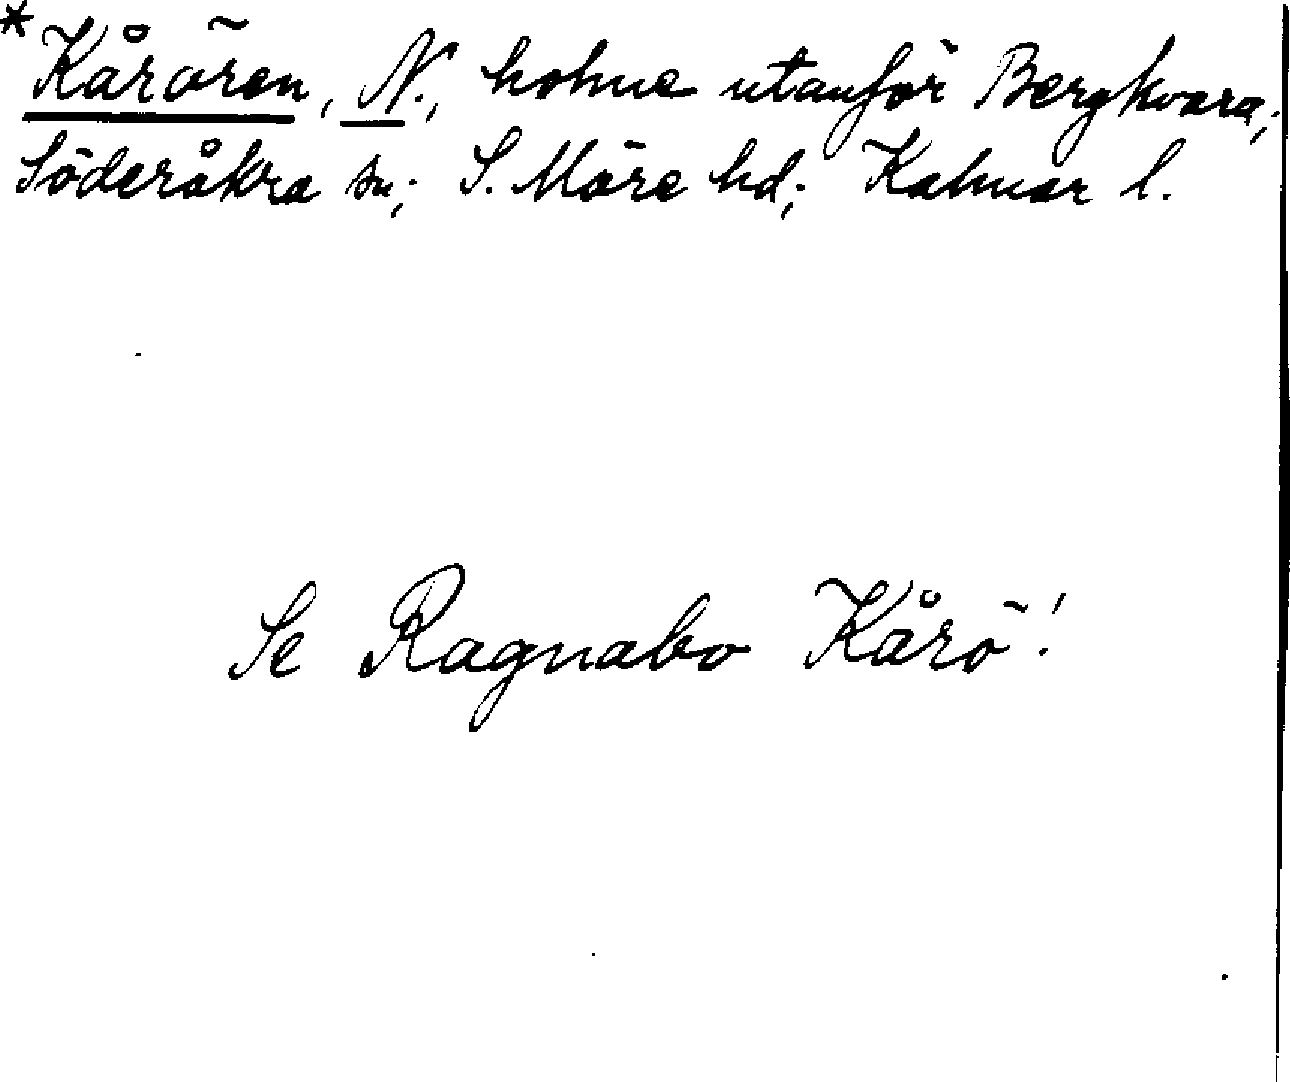 *Kårören, N., holme utanför Bergkvara,
Söderåkra sn; S. Möre hd; Kalmar l.
Se Ragnabo Kårö!